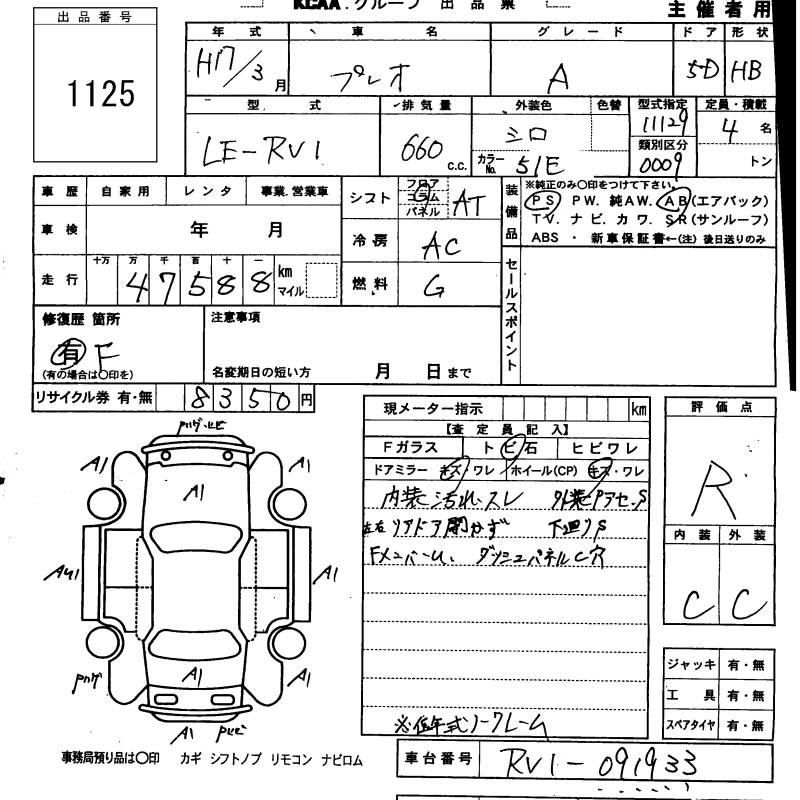 KCAA.グループ 出品票
主催者用
出品番号
1125
年式 車名 グレード ドア 形状
H17/3月 プレオ A 5D HB
型式 排気量 外装色 色替 型式指定 定員・積載
LE-RV1 660 c.c. シロ 11129 4名
カラーNo. 51E 類別区分 0009 トン
車歴 自家用 レンタ 事業.営業車
車検 年 月
走行 十万 万 千 百 十 一
47588 km マイル
シフト フロア コラム パネル AT
冷房 AC
燃料 G
装備品
※純正のみ〇印をつけて下さい。
PS PW. 純AW. AB(エアバック)
TV. ナビ. カワ. SR(サンルーフ)
ABS ・ 新車保証書←(注) 後日送りのみ
セールスポイント
修復歴 箇所
有 F
(有の場合は〇印を)
注意事項
名変期日の短い方 月 日まで
リサイクル券 有・無 8350円
現メーター指示 km
【査定員記入】
Fガラス トビ石 ヒビワレ
ドアミラー キズ・ワレ ホイール(CP) キズ・ワレ
内装汚れ・スレ 外装PアセS
左右リアドア開かず 下廻りS
FメンバーU、ダッシュパネルC穴
※低年式ノークレーム
評価点
R
内装 外装
C C
ジャッキ 有・無
工具 有・無
スペアタイヤ 有・無
A1 A1
A1
AU1 A1
A1
A1
A1
事務局預り品は〇印 カギ シフトノブ リモコン ナビロム
車台番号 RV1-091933